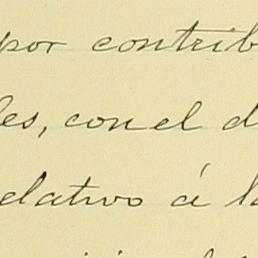 por contrib
les, con el d
elativo á la